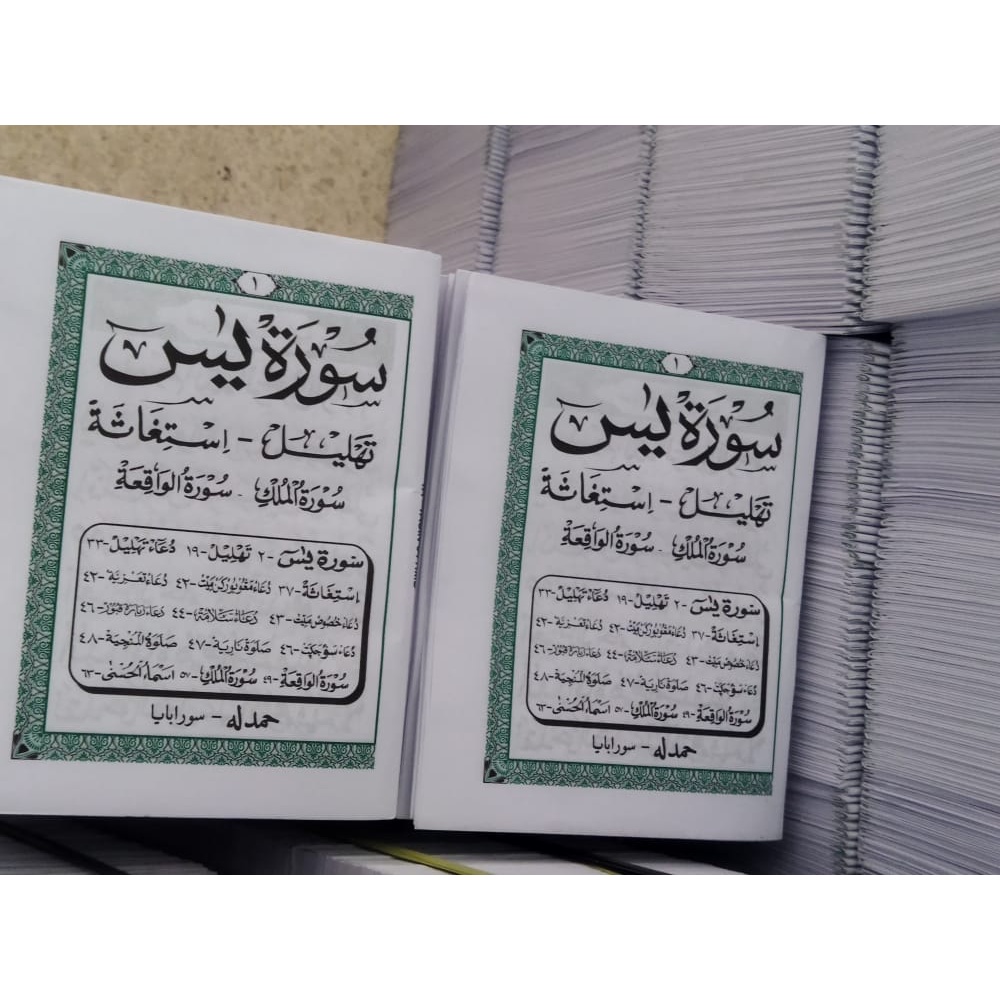 ١
سُوْرَةُ يٰسٓ
تَهْلِيْل - اِسْتِغَاثَةْ
سُوْرَةُ الْمُلْكِ - سُوْرَةُ الْوَاقِعَةِ
سورة يٰسٓ -٢ تهليل -١٩ دُعَاء تهليل -٣٣
اِسْتِغَاثَةْ -٣٧ دُعَاء مقبوركن ميت -٤٢ دُعَاء تعزية -٤٢
دُعَاء خصوص ميت -٤٣ دُعَاء سلامة -٤٤ دُعَاء زيارة قبور -٤٦
دُعَاء سوجكت -٤٦ صلوة نارية -٤٧ صلوة المنجية -٤٨
سُوْرَةُ الْوَاقِعَةِ -٤٩ سُوْرَةُ الْمُلْكِ -٥٧ اسماء الحسنى -٦٣
حمد له - سورابايا
١
سُوْرَةُ يٰسٓ
تَهْلِيْل - اِسْتِغَاثَةْ
سُوْرَةُ الْمُلْكِ - سُوْرَةُ الْوَاقِعَةِ
سورة يٰسٓ -٢ تهليل -١٩ دُعَاء تهليل -٣٣
اِسْتِغَاثَةْ -٣٧ دُعَاء مقبوركن ميت -٤٢ دُعَاء تعزية -٤٢
دُعَاء خصوص ميت -٤٣ دُعَاء سلامة -٤٤ دُعَاء زيارة قبور -٤٦
دُعَاء سوجكت -٤٦ صلوة نارية -٤٧ صلوة المنجية -٤٨
سُوْرَةُ الْوَاقِعَةِ -٤٩ سُوْرَةُ الْمُلْكِ -٥٧ اسماء الحسنى -٦٣
حمد له - سورابايا